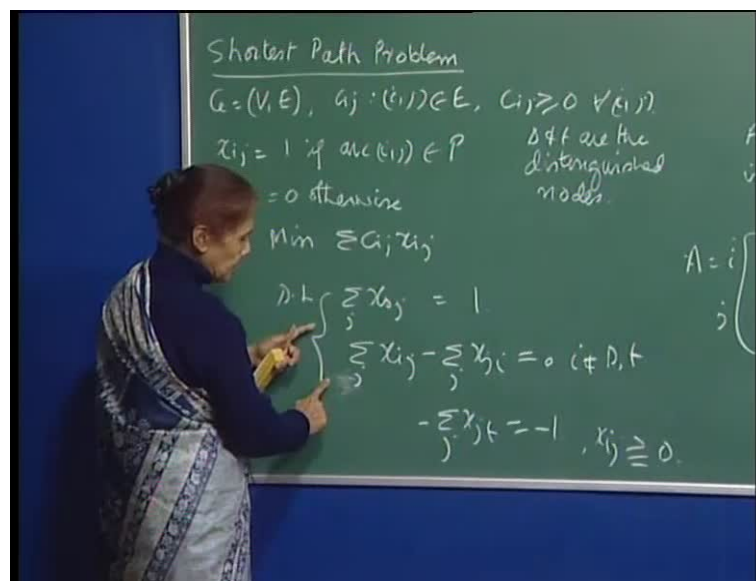 Shortest Path Problem
G = (V, E), Cij : (i,j) ∈ E, Cij ≥ 0 ∀(i,j).
xij = 1 if arc (i,j) ∈ P
= 0 otherwise
s & t are the
distinguished
nodes.
Min Σ Cij xij
s.t. Σj xsj = 1
Σj xij − Σj xji = 0 i ≠ s, t
−Σj xjt = −1 , xij ≥ 0.
A = i
j